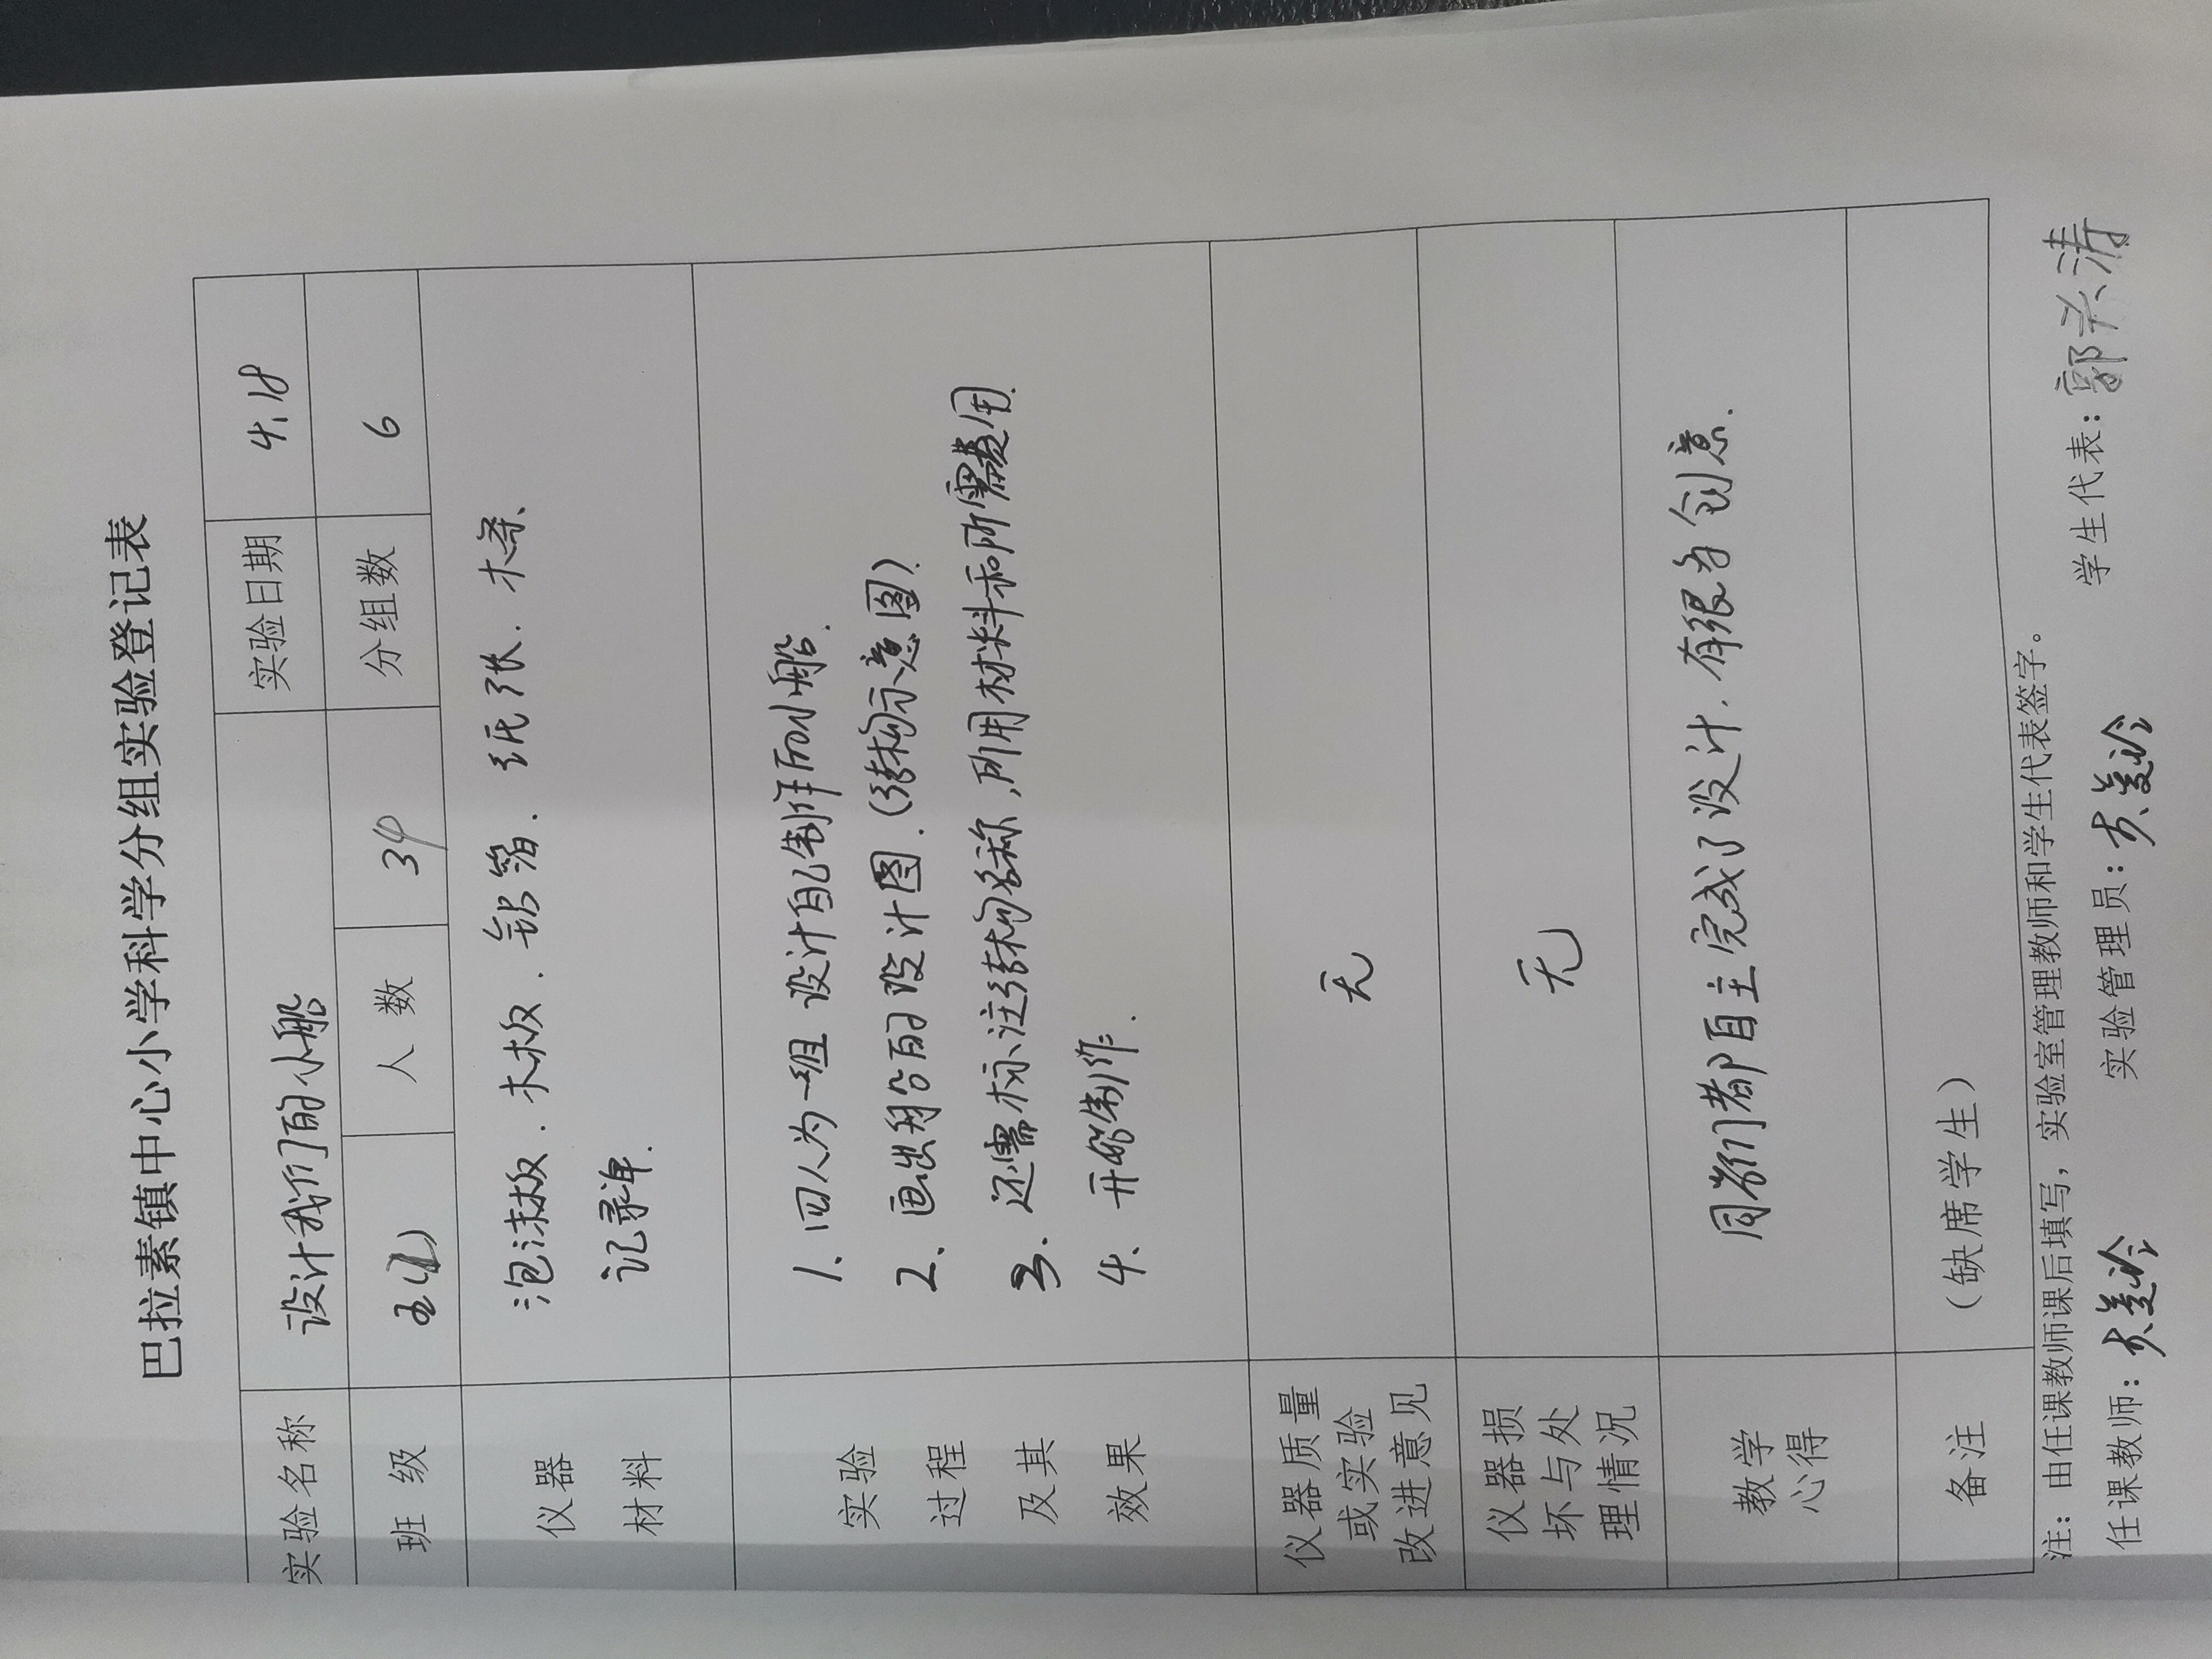 巴拉素镇中心小学科学分组实验登记表
实验名称 设计我们的小船 实验日期 4.18
班 级 五 人 数 34 分组数 6
仪器 泡沫板.木板.铝箔.纸张.木条、
材料 记录单.
实验 1、四人为一组 设计自己制作的小船.
过程 2、画出船的设计图.(结构示意图).
及其 3.还需标注结构名称,所用材料和所需费用.
效果 4、开始制作.
仪器质量
或实验 无
改进意见
仪器损
坏与处 无
理情况
教学 同学们都自主完成了设计.有很多创意.
心得
备注 （缺席学生）
注：由任课教师课后填写，实验室管理教师和学生代表签字。
任课教师： 实验管理员： 学生代表：郭 涛